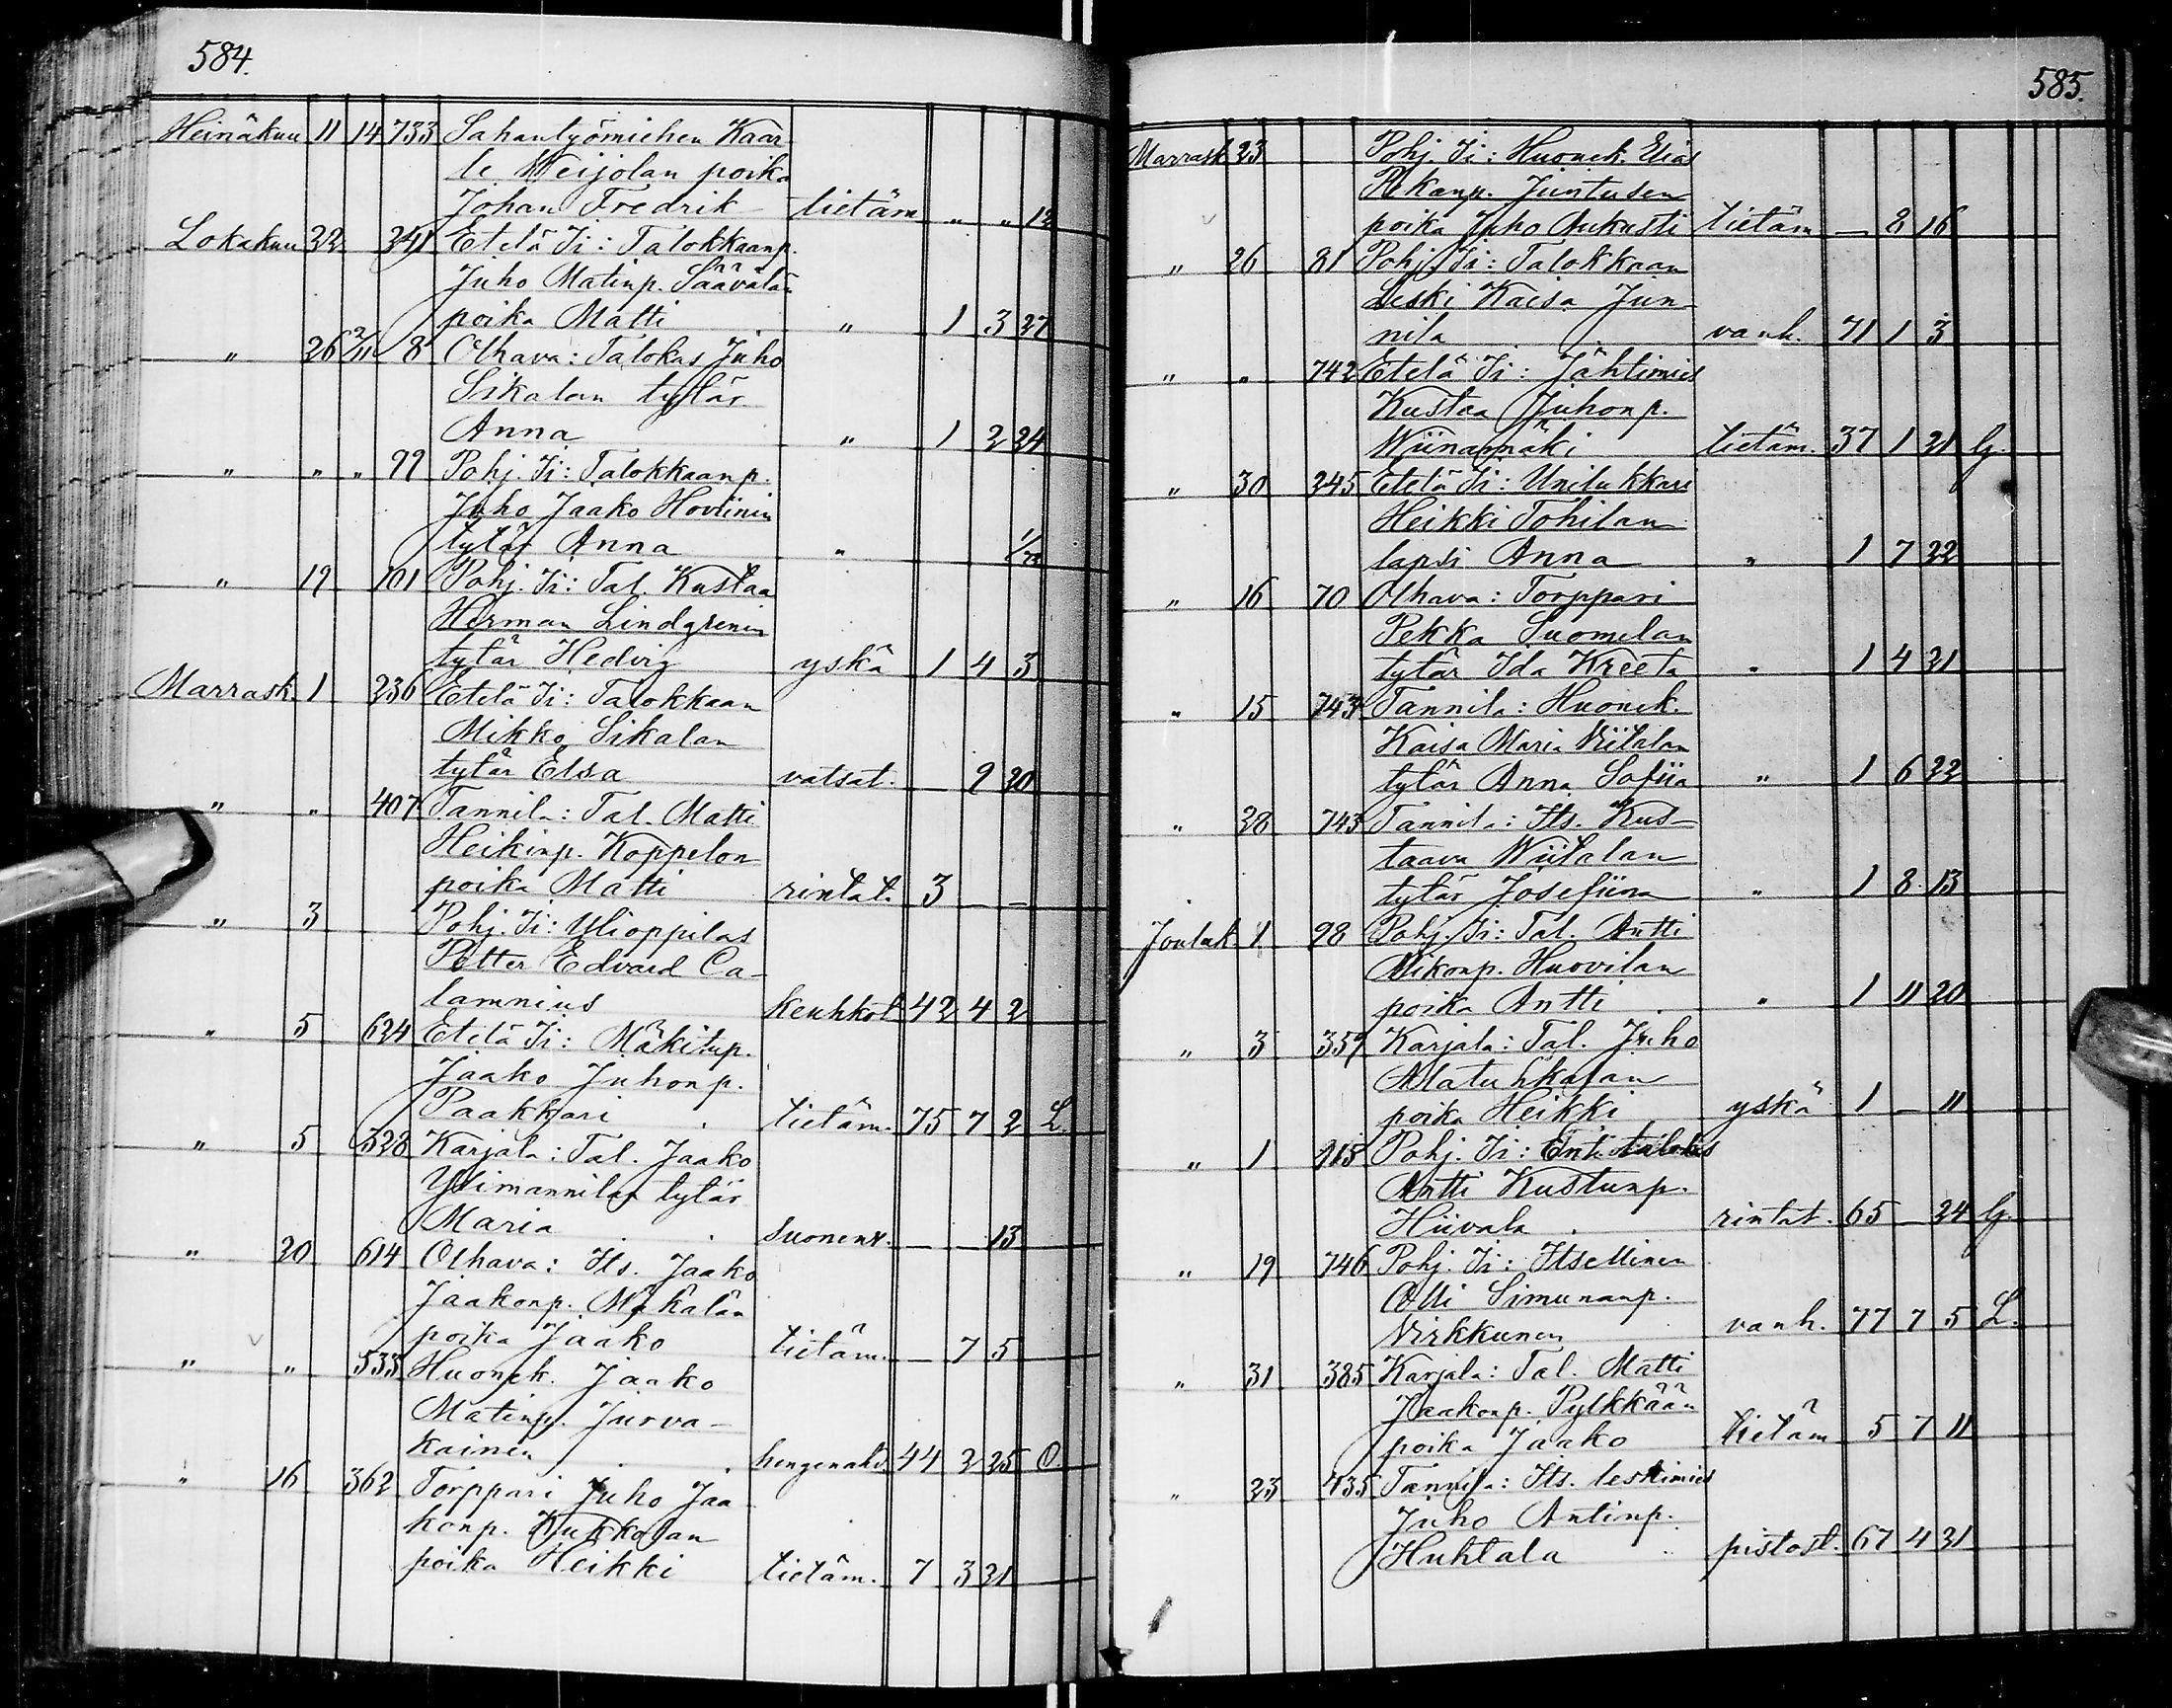 584.
Heinäkuu 11 14 733 Sahantyömiehen Kaar
le Weijolan poika
Johan Fredrik tietäm „ „ 12
Lokakuu 22 241 Etelä Ii: Talokkaanp.
Juho Matinp. Säävälän
poika Matti „ 1 3 27
„ 26 2/11 8 Olhava: Talokas Juho
Sikalan tytär
Anna „ 1 2 24
„ „ „ 99 Pohj. Ii: Talokkaanp.
Juho Jaako Hovinin
tytär Anna „ 1/2
„ 19 101 Pohj. Ii: Tal. Kustaa
Herman Lindgrenin
tytär Hedvig yskä 1 4 3
Marrask. 1 236 Etelä Ii: Talokkaan
Mikko Sikalan
tytär Elsa vatsat. — 9 20
„ „ 407 Tannila: Tal. Matti
Heikinp. Koppelon
poika Matti rintat. 3 — —
„ 3 Pohj. Ii: Ylioppilas
Petter Edvard Ca-
lamnius keuhkot 42 4 2
„ 5 624 Etelä Ii: Mäkitup.
Jaako Juhonp.
Paakkari tietäm. 75 7 2 L.
„ 5 328 Karjala: Tal. Jaako
Ylimannilan tytär
Maria suonenv. — — 13
„ 20 614 Olhava: Its. Jaako
Jaakonp. Mäkälän
poika Jaako tietäm. — 7 5
„ „ 533 Huonek. Jaako
Matinp. Jurva-
kainen hengenahd. 44 2 25 O
„ 16 362 Torppari Juho Jaa
konp. Kukkolan
poika Heikki tietäm. 7 3 21
585.
Marrask 23 Pohj. Ii: Huonek. Elias
Pekanp. Juntusen
poika Juho Aukusti tietäm — 8 16
„ 26 81 Pohj. Ii: Talokkaan
Leski Kaisa Jun
nila vanh. 71 1 3
„ „ 742 Etelä Ii: Jähtimies
Kustaa Juhonp.
Wiinamäki tietäm. 37 1 21 lj.
„ 30 245 Etelä Ii: Unilukkari
Heikki Tohilan
lapsi Anna „ 1 7 22
„ 16 70 Olhava: Torppari
Pekka Suomelan
tytär Ida Kreeta „ 1 4 21
„ 15 743 Tannila: Huonek.
Kaisa Maria Viitalan
tytär Anna Sofiia „ 1 6 22
„ 28 743 Tannila: Its. Kus-
taava Wiitalan
tytär Josefiina „ 1 8 13
Jouluk. 1 98 Pohj. Ii: Tal. Antti
Mikonp. Huovilan
poika Antti „ 1 11 20
„ 3 359 Karjala: Tal. Juho
Alatuhkalan
poika Heikki yskä 1 — 11
„ 1 215 Pohj. Ii: Ent. talokas
Antti Kustunp.
Hiivala rintat. 65 — 24 lj.
„ 19 746 Pohj. Ii: Itsellinen
Olli Simunanp.
Virkkunen vanh. 77 7 5 L.
„ 31 385 Karjala: Tal. Matti
Jaakonp. Pylkkään
poika Jaako tietäm 5 7 11
„ 23 735 Tannila: Its. leskimies
Juho Antinp.
Huhtala pistost. 67 4 21